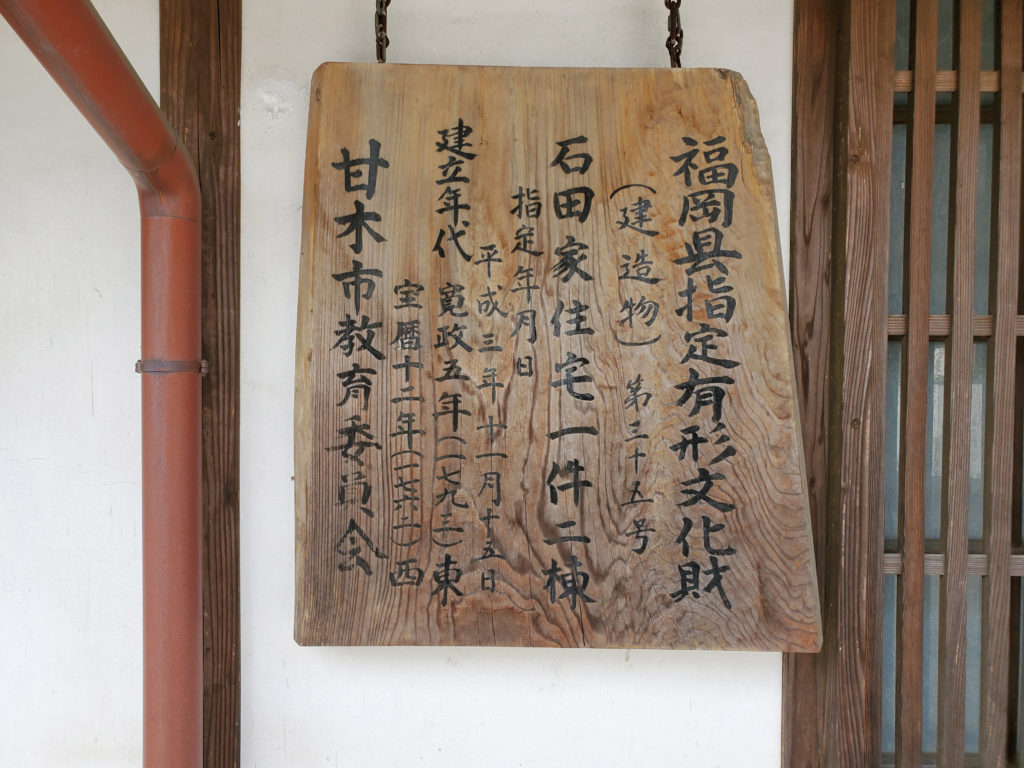 福岡県指定有形文化財
(建造物) 第三十五号
石田家住宅一件二棟
指定年月日
平成三年十一月十五日
建立年代 寛政五年(一七九三)東
宝暦十二年(一七六二)西
甘木市教育委員会